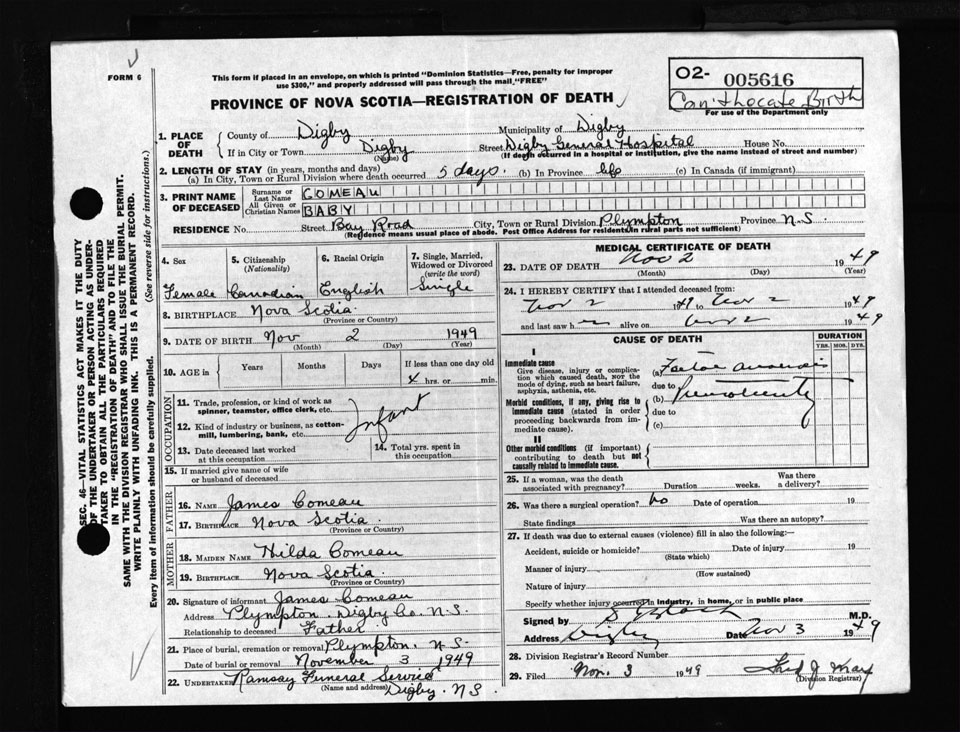 FORM 6
This form if placed in an envelope, on which is printed "Dominion Statistics—Free, penalty for improper
use $300," and properly addressed will pass through the mail, "FREE"
O2- 005616
Can't locate Birth
For use of the Department only
PROVINCE OF NOVA SCOTIA—REGISTRATION OF DEATH
SEC. 46—VITAL STATISTICS ACT MAKES IT THE DUTY
OF THE UNDERTAKER OR PERSON ACTING AS UNDER-
TAKER TO OBTAIN ALL THE PARTICULARS REQUIRED
IN THE "REGISTRATION OF DEATH" AND TO FILE THE
SAME WITH THE DIVISION REGISTRAR WHO SHALL ISSUE THE BURIAL PERMIT.
WRITE PLAINLY WITH UNFADING INK. THIS IS A PERMANENT RECORD.
Every item of information should be carefully supplied. (See reverse side for instructions.)
1. PLACE OF DEATH
County of Digby Municipality of Digby
If in City or Town Digby Street Digby General Hospital House No.
(Name) (If death occurred in a hospital or institution, give the name instead of street and number)
2. LENGTH OF STAY (in years, months and days)
(a) In City, Town or Rural Division where death occurred 5 days. (b) In Province life (c) In Canada (if immigrant)
3. PRINT NAME OF DECEASED
Surname or Last Name COMEAU
All Given or Christian Names BABY
RESIDENCE No. Street Bay Road City, Town or Rural Division Plympton Province N.S.
(Residence means usual place of abode. Post Office Address for residents in rural parts not sufficient)
4. Sex Female
5. Citizenship (Nationality) Canadian
6. Racial Origin English
7. Single, Married, Widowed or Divorced (write the word) Single
8. BIRTHPLACE Nova Scotia
(Province or Country)
9. DATE OF BIRTH Nov 2 1949
(Month) (Day) (Year)
10. AGE in Years Months Days If less than one day old
4 hrs. or min.
OCCUPATION
11. Trade, profession, or kind of work as
spinner, teamster, office clerk, etc. Infant
12. Kind of industry or business, as cotton-
mill, lumbering, bank, etc.
13. Date deceased last worked
at this occupation
14. Total yrs. spent in
this occupation
15. If married give name of wife
or husband of deceased
FATHER
16. NAME James Comeau
17. BIRTHPLACE Nova Scotia
(Province or Country)
MOTHER
18. MAIDEN NAME Hilda Comeau
19. BIRTHPLACE Nova Scotia.
(Province or Country)
20. Signature of informant James Comeau
Address Plympton. Digby Co. N.S.
Relationship to deceased Father
21. Place of burial, cremation or removal Plympton. N.S.
Date of burial or removal November 3 1949
22. UNDERTAKER Ramsay Funeral Service
(Name and address) Digby. N.S.
MEDICAL CERTIFICATE OF DEATH
23. DATE OF DEATH Nov 2 1949
(Month) (Day) (Year)
24. I HEREBY CERTIFY that I attended deceased from:
Nov 2 1949 to Nov 2 1949
and last saw h er alive on Nov 2 1949
CAUSE OF DEATH
DURATION
YRS. MOS. DYS.
I
Immediate cause
Give disease, injury or complica-
tion which caused death, not the
mode of dying, such as heart failure,
asphyxia, asthenia, etc.
(a)
due to
Morbid conditions, if any, giving rise to
immediate cause (stated in order
proceeding backwards from im-
mediate cause).
(b) Prematurity
due to
(c)
II
Other morbid conditions (if important)
contributing to death but not
causally related to immediate cause.
25. If a woman, was the death
associated with pregnancy? Duration weeks. Was there
a delivery?
26. Was there a surgical operation? No Date of operation 19
State findings Was there an autopsy?
27. If death was due to external causes (violence) fill in also the following:—
Accident, suicide or homicide? Date of injury 19
(State which)
Manner of injury
(How sustained)
Nature of injury
Specify whether injury occurred in industry, in home, or in public place
Signed by M.D.
Address Digby Date Nov 3 1949
28. Division Registrar's Record Number
29. Filed Nov. 3 1949
(Division Registrar)